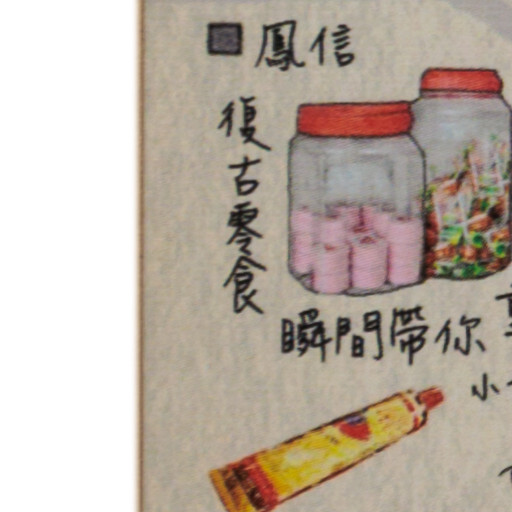 鳳信
復古零食
瞬間帶你
小